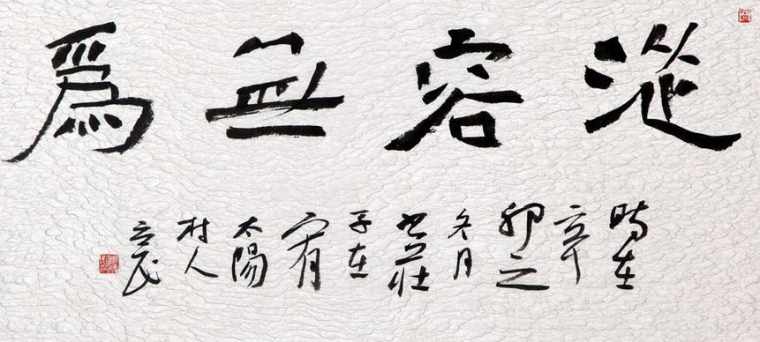 從容無爲
時在
辛
卯之
冬月
書莊
子在
宥
太陽
村人
立民